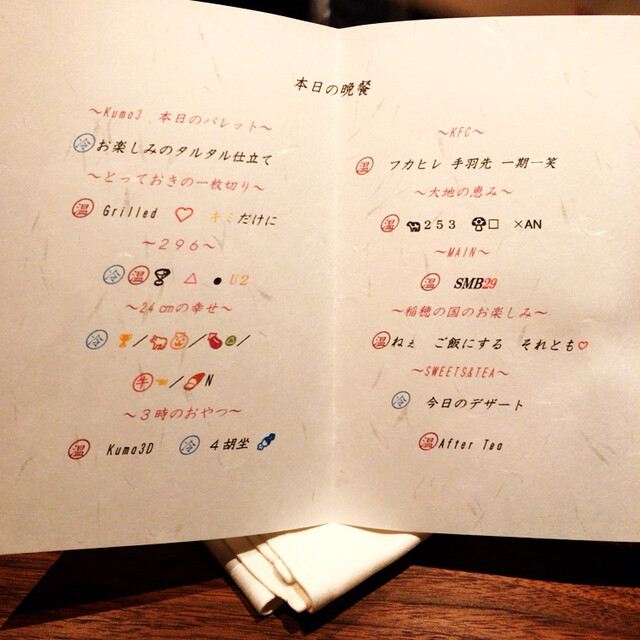 本日の晩餐
～Kuma3 本日のパレット～
冷 お楽しみのタルタル仕立て
～とっておきの一枚切り～
温 Grilled ♡ キミだけに
～２９６～
冷 温 △ ● U2
～24㎝の幸せ～
冷 / / /
牛 / N
～３時のおやつ～
温 Kuma3D 冷 ４胡坐
～KFC～
温 フカヒレ 手羽先 一期一笑
～大地の恵み～
温 ２５３ □ ×AN
～MAIN～
温 SMB29
～稲穂の国のお楽しみ～
温 ねぇ ご飯にする それとも♡
～SWEETS&TEA～
冷 今日のデザート
温 After Tea